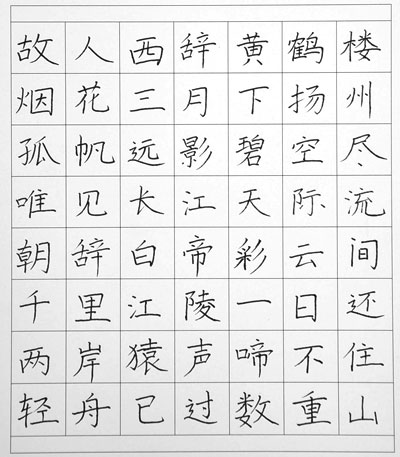 故人西辞黄鹤楼
烟花三月下扬州
孤帆远影碧空尽
唯见长江天际流
朝辞白帝彩云间
千里江陵一日还
两岸猿声啼不住
轻舟已过数重山